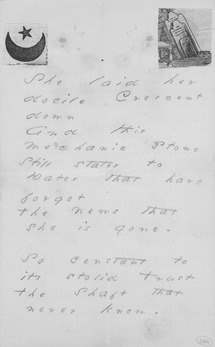 She laid her
docile Crescent
down
And this
mechanic Stone
Still states to
Dates that have
forgot
the news that
she is gone.
So constant to
its stolid trust
the Shaft that
never knew.